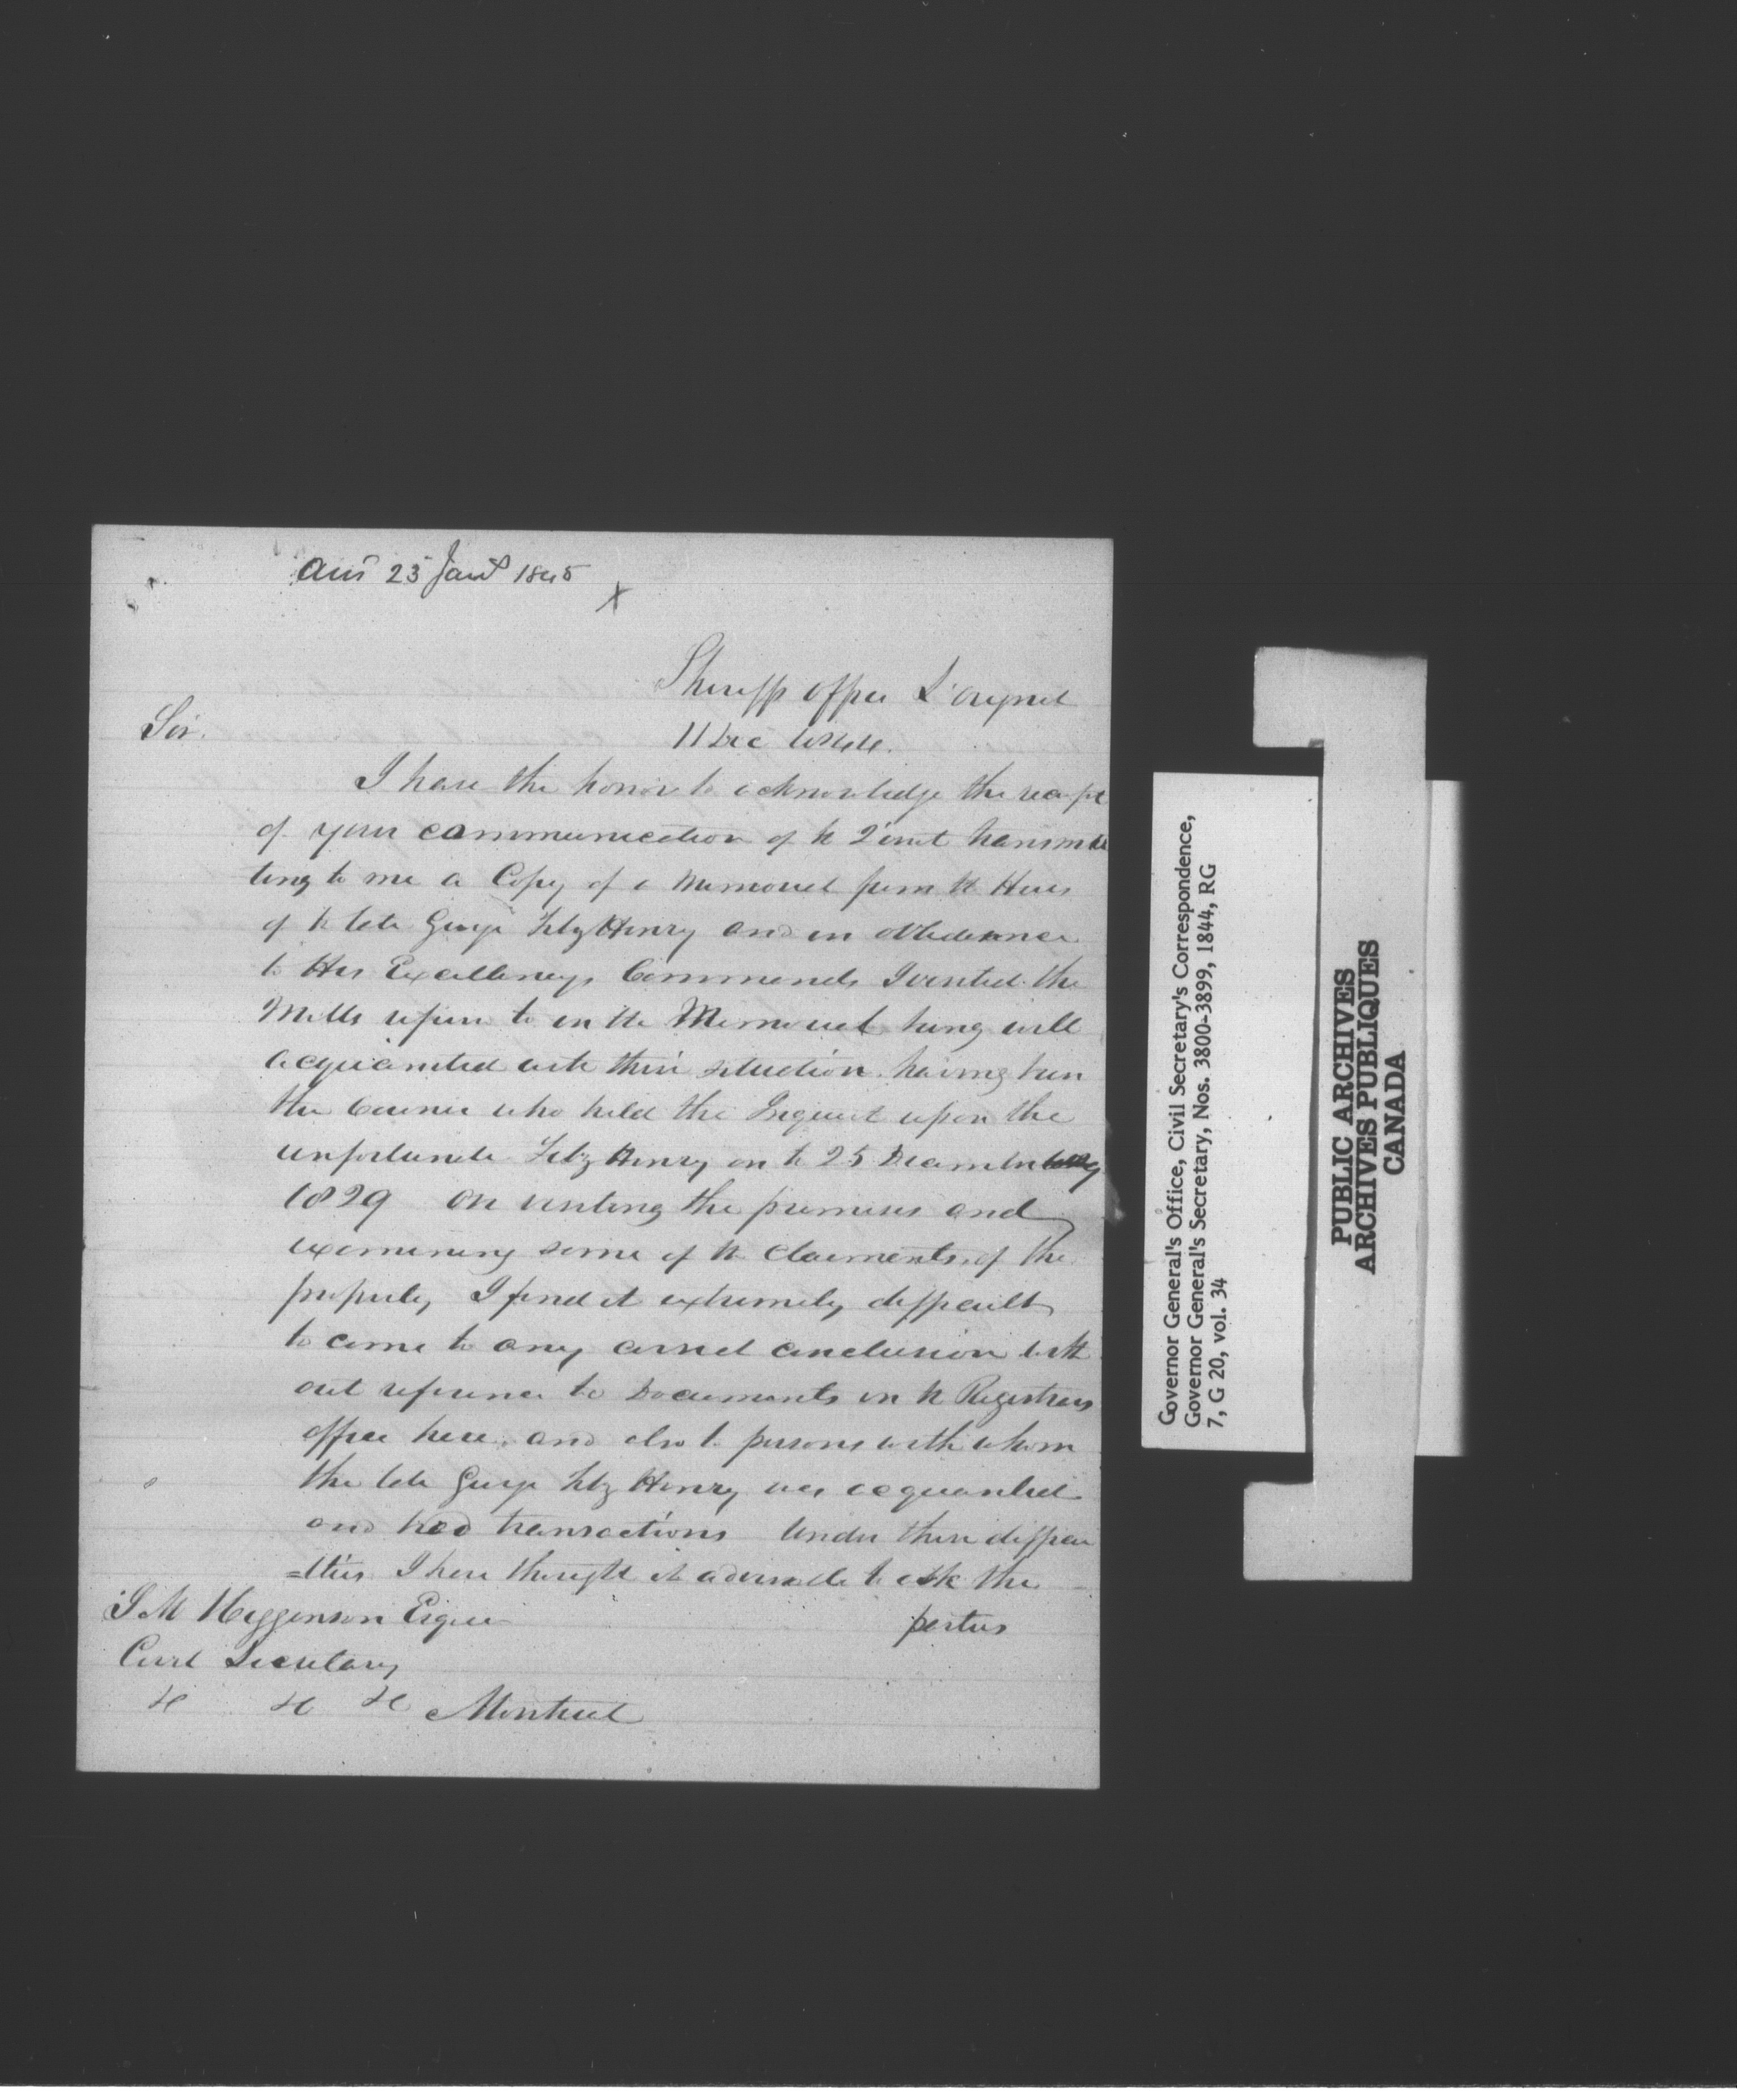 Ans 23 Jany 1845
Sheriffs office L'orignal
11 Dec 1844.
Sir.
I have the honor to acknowledge the receipt
of your communication of the 2 inst transmit
ting to me a Copy of a Memorial from the Heirs
of the late George Fitz Henry and in obedience
to His Excellencys Commands I visited the
Mills refered to in the Memorial being well
acquainted with their situation having been
the Coroner who held the Inquest upon the
unfortunate Fitz Henry on the 25 December
1829 On visiting the premises and
examining some of the claimants of the
property I find it extremely difficult
to come to any correct conclusion with
out reference to Documents in the Registrars
office here, and also to persons with whom
the late George Fitz Henry was acquainted
and had transactions Under these difficu
=lties I have thought it advisable to ask the
parties
J M Higginson Esquire
Civil Secretary
&c &c &c Montreal
Governor General's Office, Civil Secretary's Correspondence,
Governor General's Secretary, Nos. 3800-3899, 1844, RG
7, G 20, vol. 34
PUBLIC ARCHIVES
ARCHIVES PUBLIQUES
CANADA